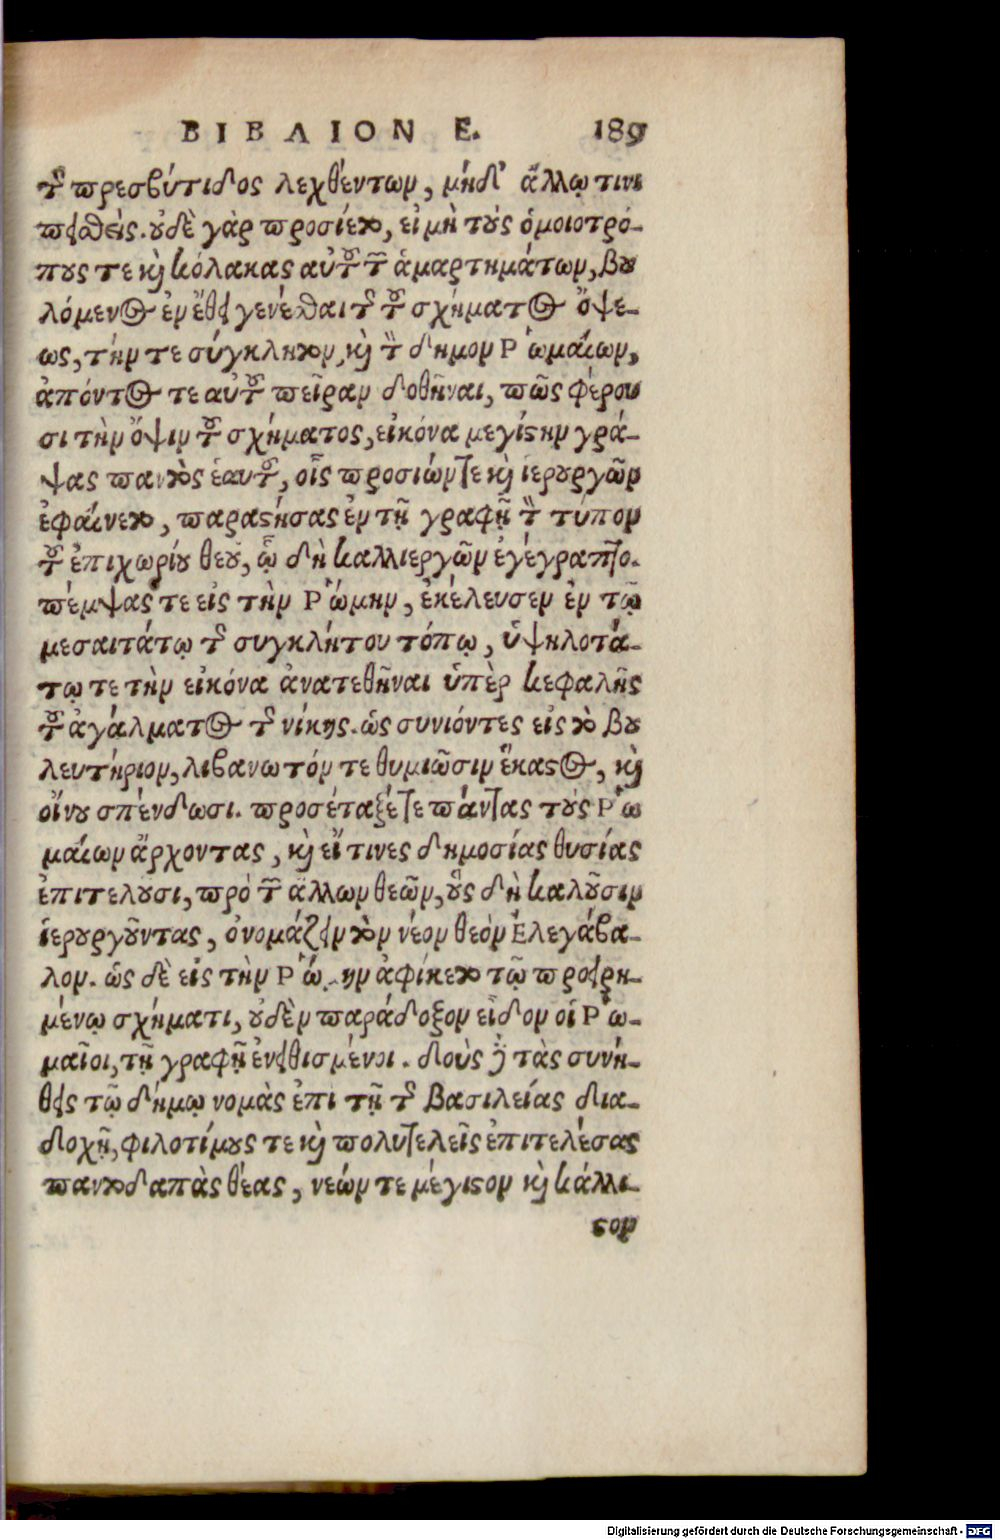 ΒΙΒΛΙΟΝ Ε. 189
τῆς πρεσβύτιδος λεχθέντων, μήδ' ἄλλῳ τινι
πεισθείς. οὐδὲ γὰρ προσίετο, εἰ μὴ τοὺς ὁμοιοτρό-
πους τε καὶ κόλακας αὐτοῦ τῶν ἁμαρτημάτων, βου
λόμενος ἐν ἔθει γενέσθαι τῆς τοῦ σχήματος ὄψε-
ως, τήν τε σύγκλητον, καὶ τὸν δῆμον Ῥωμαίων,
ἀπόντος τε αὐτοῦ πεῖραν δοθῆναι, πῶς φέρου
σι τὴν ὄψιν τοῦ σχήματος, εἰκόνα μεγίστην γρά-
ψας παντὸς ἑαυτοῦ, οἷς προσιών τε καὶ ἱερουργῶν
ἐφαίνετο, παραστήσας ἐν τῇ γραφῇ τὸν τύπον
τοῦ ἐπιχωρίου θεοῦ, ᾧ δὴ καλλιεργῶν ἐγέγραπτο.
πέμψας τε εἰς τὴν Ῥώμην, ἐκέλευσεν ἐν τῷ
μεσαιτάτῳ τῆς συγκλήτου τόπῳ, ὑψηλοτά-
τῳ τε τὴν εἰκόνα ἀνατεθῆναι ὑπὲρ κεφαλῆς
τοῦ ἀγάλματος τῆς νίκης. ὡς συνιόντες εἰς τὸ βου
λευτήριον, λιβανωτόν τε θυμιῶσιν ἕκαστος, καὶ
οἴνου σπένδωσι. προσέταξέ τε πάντας τοὺς Ῥω
μαίων ἄρχοντας, καὶ εἴ τινες δημοσίας θυσίας
ἐπιτελοῦσι, πρὸ τῶν ἄλλων θεῶν, οὓς δὴ καλοῦσιν
ἱερουργοῦντας, ὀνομάζειν τὸν νέον θεὸν Ἐλεγάβα-
λον. ὡς δὲ εἰς τὴν Ῥώμην ἀφίκετο τῷ προειρη-
μένῳ σχήματι, οὐδὲν παράδοξον εἶδον οἱ Ῥω-
μαῖοι, τῇ γραφῇ ἐνειθισμένοι. δοὺς δὲ τὰς συνή-
θεις τῷ δήμῳ νομὰς ἐπι τῇ τῆς βασιλείας δια-
δοχῇ, φιλοτίμους τε καὶ πολυτελεῖς ἐπιτελέσας
παντοδαπὰς θέας, νεών τε μέγιστον καὶ κάλλι-
στον
Digitalisierung gefördert durch die Deutsche Forschungsgemeinschaft - DFG